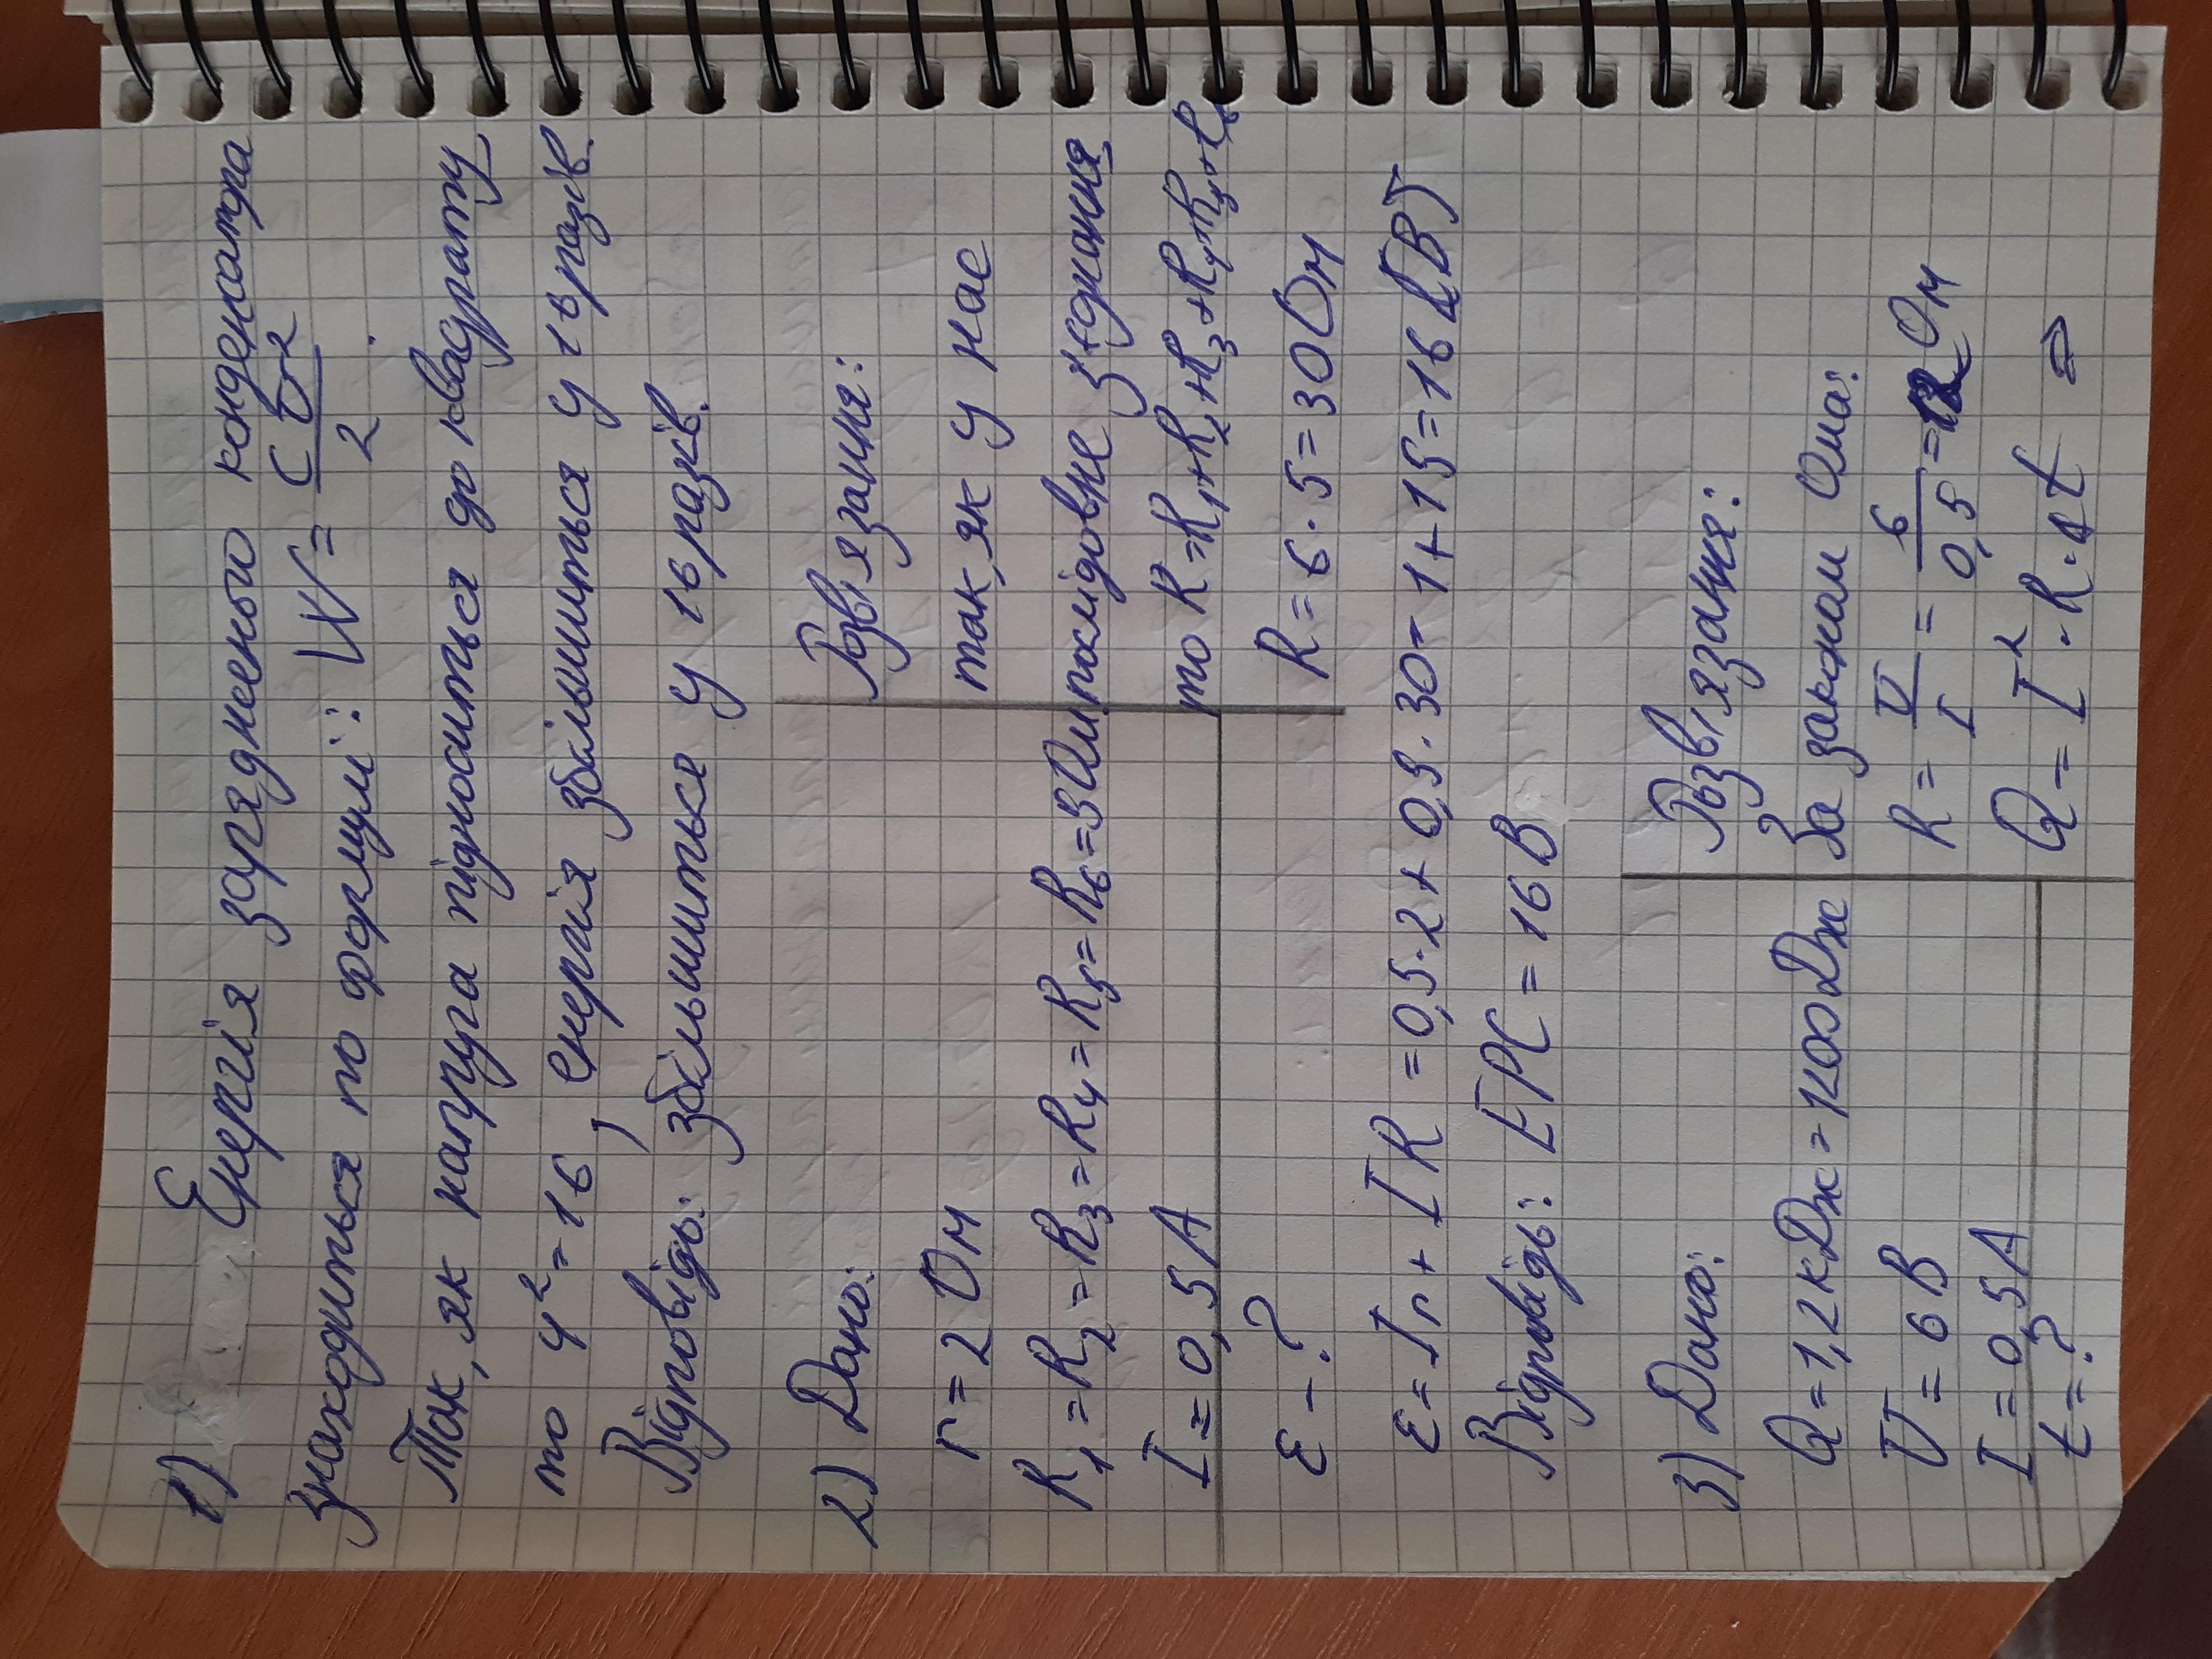 1) Енергія зарядженого конденсатра
знаходиться по формулі: W = CU²/2
Так, як напруга підноситься до квадрату,
то 4² = 16, енергія збільшиться у 16 разів.
Відповідь: збільшиться у 16 разів.
2) Дано:
r = 2 Ом
R₁ = R₂ = R₃ = R₄ = R₅ = R₆ = 5 Ом
I = 0,5 А
ε - ?
Розв'язання:
так, як у нас
послідовне з'єднання,
то R = R₁ + R₂ + R₃ + R₄ + R₅ + R₆
R = 6 · 5 = 30 Ом
ε = Ir + IR = 0,5 · 2 + 0,5 · 30 = 1 + 15 = 16 (В)
Відповідь: ЕРС = 16 В
3) Дано:
Q = 1,2 кДж = 1200 Дж
U = 6 В
I = 0,5 А
t = ?
Розв'язання:
За законом Ома:
R = U/I = 6/0,5 = 12 Ом
Q = I² · R · Δt ⇒